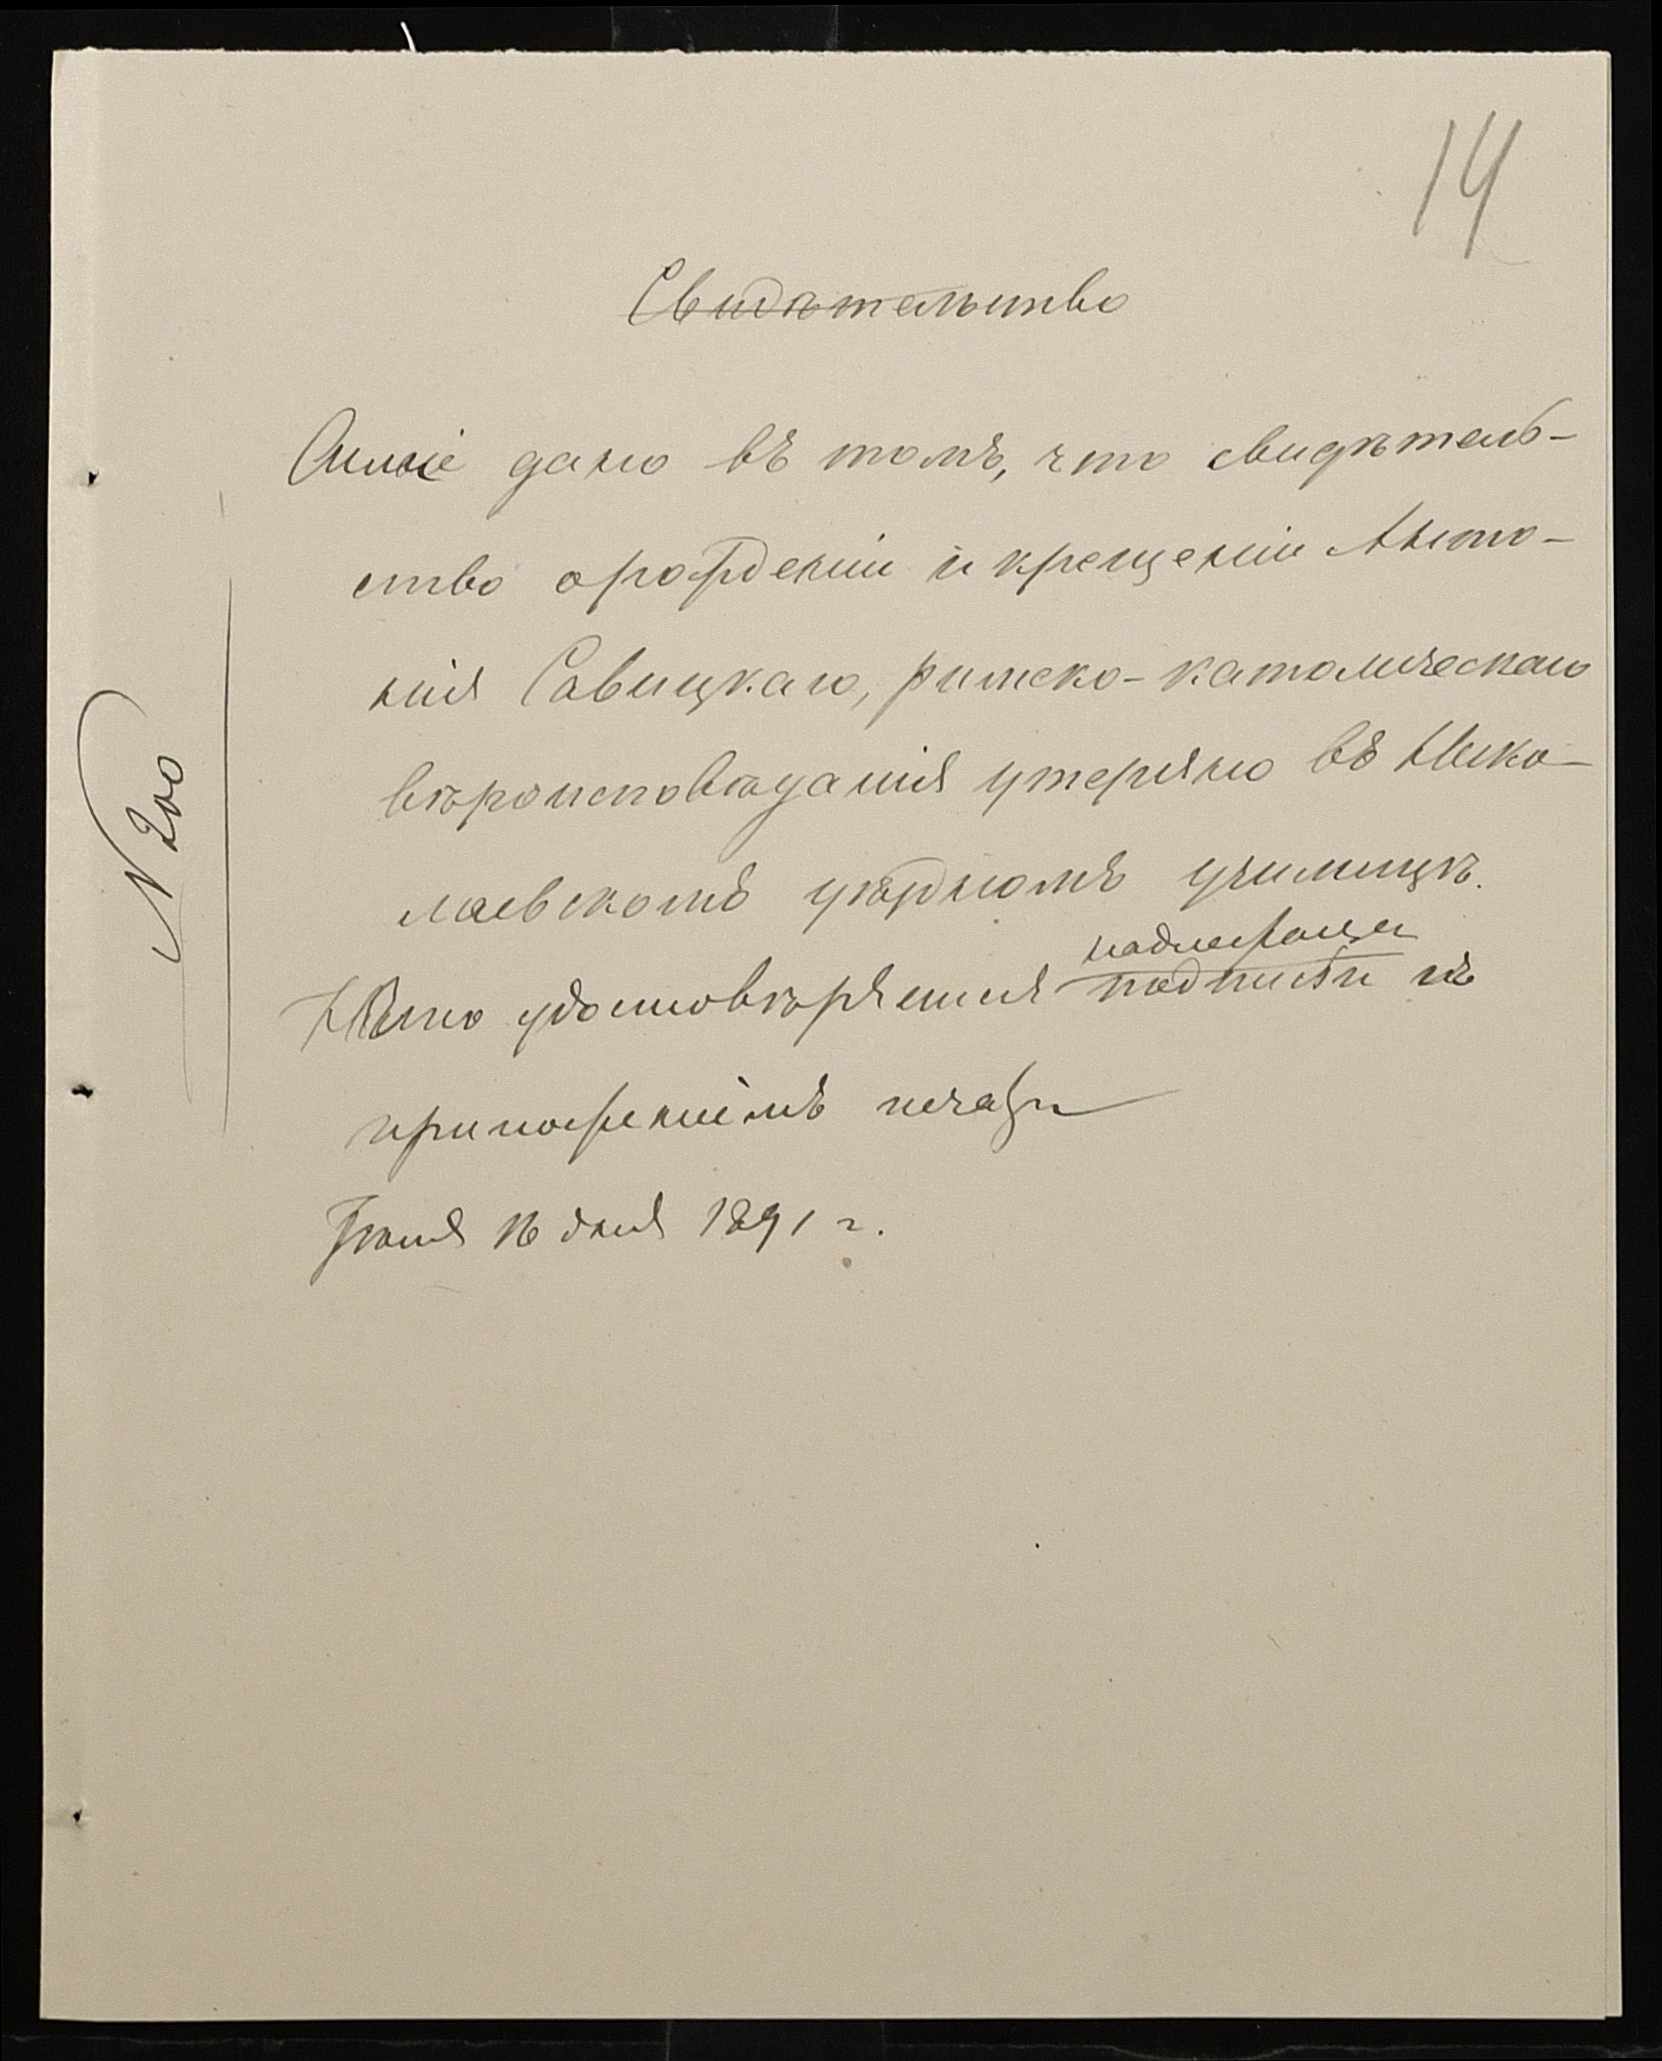 14
Свидѣтельство
дано въ томъ, что свидѣтель-
ство о рожденіи и крещеніи Анто-
нія Савицкаго, римско-католическаго
вѣроисповѣданія утеряно въ Нико-
лаевскомъ уѣздномъ училищѣ.
надлежаще
удостовѣряемъ подписью съ
приложеніемъ печати
Іюня 16 дня 1891 г.
N 200